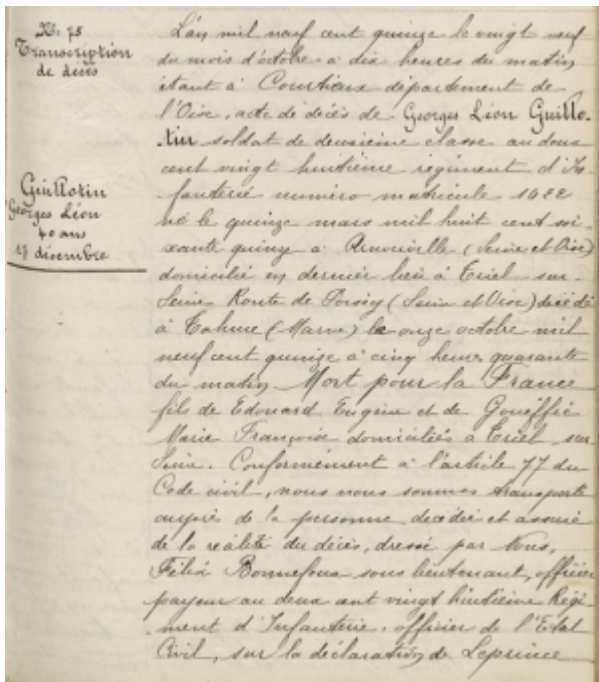 No 78
Transcription
de décès
Guillotin
Georges Léon
40 ans
17 décembre
L'an mil neuf cent quinze le vingt neuf
du mois d'octobre à dix heures du matin
étant à Courtieux département de
l'Oise, acte de décès de Georges Léon Guillo-
tin soldat de deuxième classe au deux
cent vingt huitième régiment d'In-
fanterie numéro matricule 1022
né le quinze mars mil huit cent soi-
xante quinze à Arnouville (Seine et Oise)
domicilié en dernier lieu à Triel sur
Seine Route de Poissy (Seine et Oise) décédé
à Tahure (Marne) le onze octobre mil
neuf cent quinze à cinq heures quarante
du matin, Mort pour la France
fils de Edouard Eugène et de
Marie Françoise domiciliés à Triel sur
Seine. Conformément à l'article 77 du
Code civil, nous nous sommes transporté
auprès de la personne décédée et assuré
de la réalité du décès, dressé par Nous,
Félix Bonnefous sous lieutenant, officier
payeur au deux cent vingt huitième Régi-
ment d'Infanterie, officier de l'Etat
Civil, sur la déclaration de Leprince